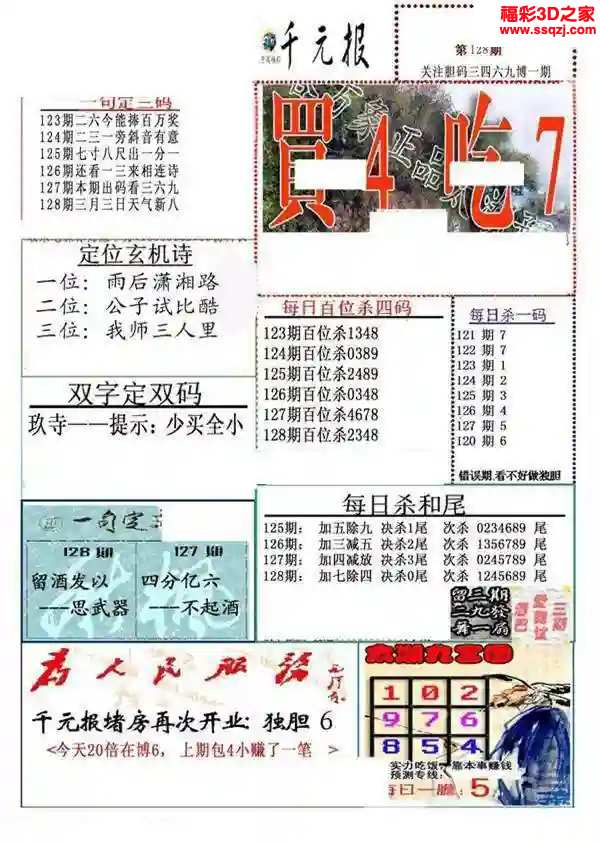 福彩3D之家
www.ssqzj.com
千元报
第128期
关注胆码三四六九博一期
一句定三码
123期二六今能捧百万奖
124期二三一旁斜音有意
125期七寸八尺出一分一
126期还看一三来相连诗
127期本期出码看三六九
128期三月三日天气新八
買4吃7
定位玄机诗
一位：雨后潇湘路
二位：公子试比酷
三位：我师三人里
每日百位杀四码
123期百位杀1348
124期百位杀0389
125期百位杀2489
126期百位杀0348
127期百位杀4678
128期百位杀2348
每日杀一码
121 期 7
122 期 7
123 期 1
124 期 8
125 期 3
126 期 0
127 期 5
120 期 6
错误期.看不好做独胆
双字定双码
玖寺——提示：少买全小
一句定
128 期
127 期
留酒发以
---思武器
四分亿六
---不起酒
每日杀和尾
125期： 加五除九 决杀1尾 次杀 0234689 尾
126期： 加三减五 决杀2尾 次杀 1356789 尾
127期： 加四减放 决杀3尾 次杀 0245789 尾
128期： 加七除四 决杀0尾 次杀 1245689 尾
留三期
二九发
舞一扇
为人民服务
千元报堵房再次开业：独胆 6
<今天20倍在博6，上期包4小赚了一笔 >
1 0 2
9 7 6
8 5 4
实力吃饭，靠本事赚钱
预测专线：
每日一胆： 5